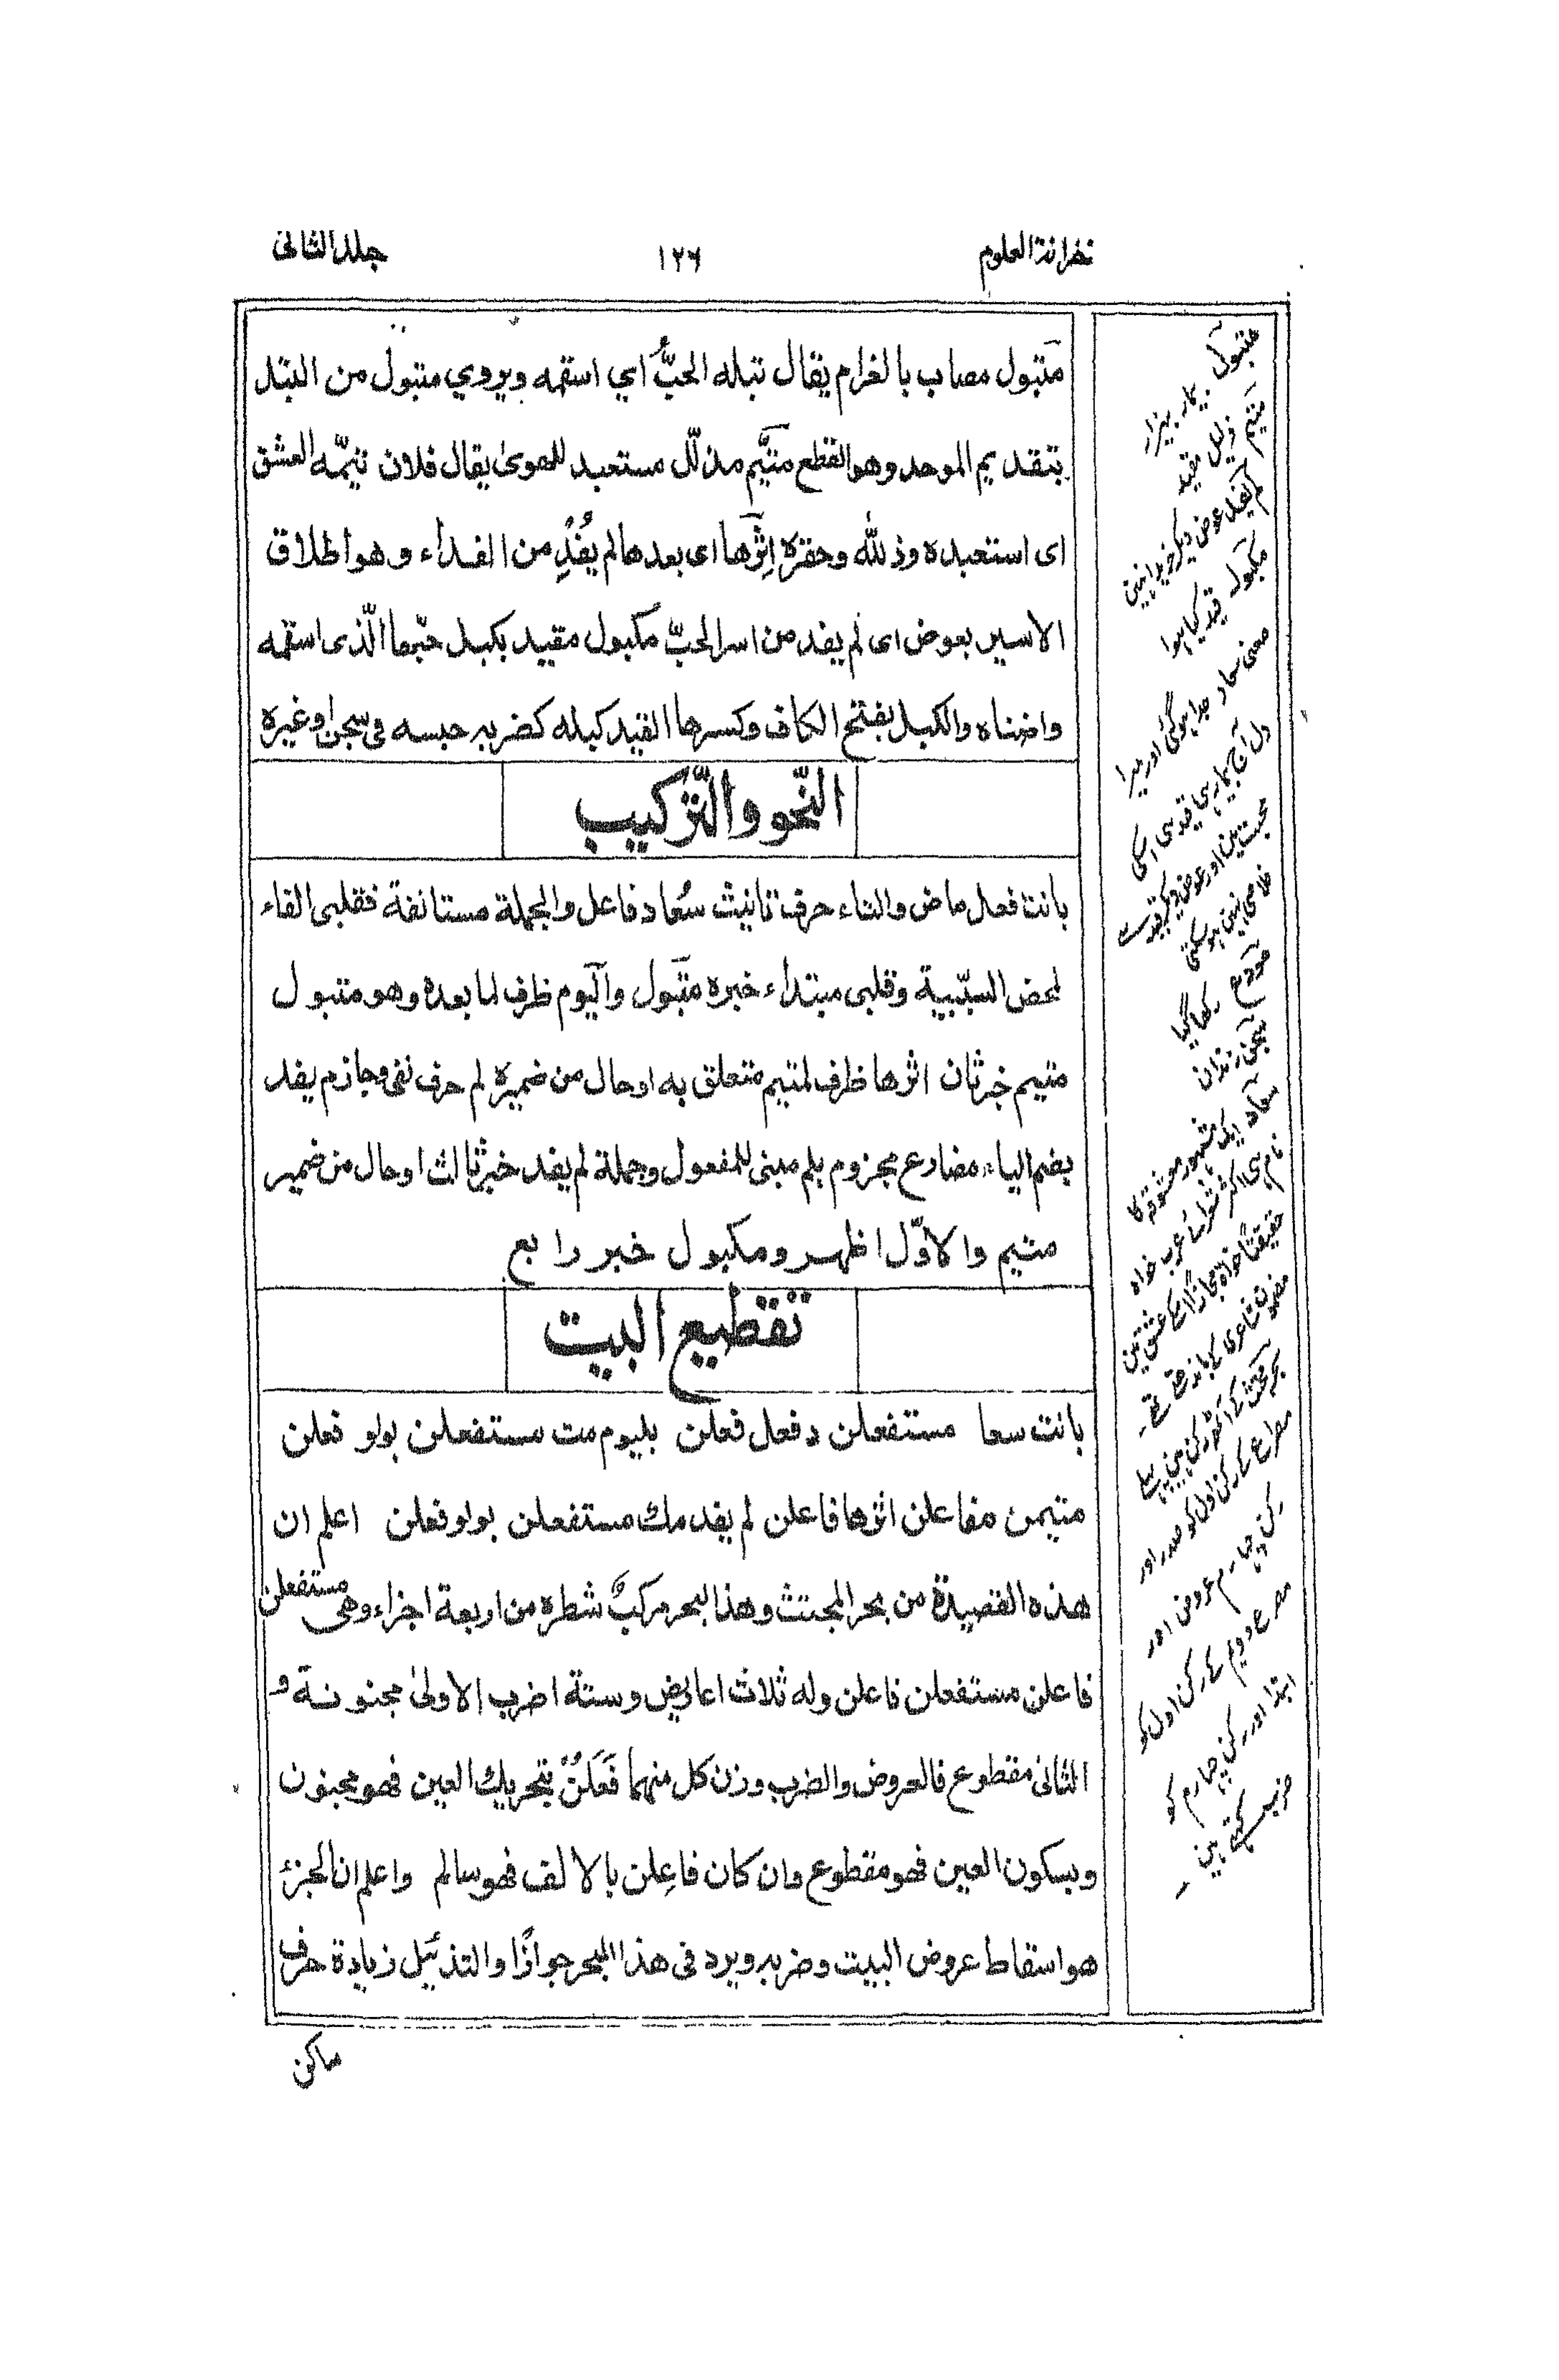 خزانة العلوم
١٢٦
جلد الثانی
متبول مصاب بالغرام يقال تبله الحبُّ اي اسقمه ويروي متبول من البتل
بتقديم الموحد وهو القطع متيَّم مذلّل مستعبد للهوىٰ يقال فلان تيّمه العشق
ای استعبده وذلله وحقره اِثرَها ای بعدها لم يُفْدِ من الفداء وهو اطلاق
الاسير بعوض ای لم يفد من اسر الحبّ مكبول مقيد بكبل حبّها الّذی اسقمه
واضناه والكبل بفتح الكاف وكسرها القيد كبله كضربه حبسه فی سجن او غيره
النّحو والتّركيب
بانت فعل ماض والتاء حرف تانيث سُعاد فاعل والجملة مستانفة فقلبی الفاء
لمحض السبّبية وقلبی مبتداء خبره متبول واليوم ظرف لما بعده وهو متبول
متيم خبر ثان اثرها ظرف لمتيم متعلق به او حال من ضميره لم حرف نفی وجازم يفد
بضم الياء مضارع مجزوم بلم مبنی للمفعول وجملة لم يفد خبر ثالث او حال من ضمير
متيم والاوّل اظهر ومكبول خبر رابع
تقطيع البيت
بانت سعا مستفعلن دفعل فعلن بليوم مت مستفعلن بولو فعلن
متيمن مفاعلن اثرها فاعلن لم يفد مك مستفعلن بولو فعلن اعلم ان
هذه القصيدة من بحر المجتث وهذا البحر مركبٌ شطره من اربعة اجزاء وهی مستفعلن
فاعلن مستفعلن فاعلن وله ثلاث اعاريض وستة اضرب الاولیٰ مخبونة و
الثانی مقطوع فالعروض والضرب وزن كل منهما فَعَلنْ بتحريك العين فهو مخبون
وبسكون العين فهو مقطوع وان كان فاعِلن بالالف فهو سالم واعلم ان الجزء
هو اسقاط عروض البيت وضربه ويرد فی هذا البحر جوازًا والتذئيل زيادة حرف
ساكن
متبول بیمار بیزار
متیم ذلیل مقید
مکبول قید کیا ہوا
معنی سعاد جدا ہوگئی اور میرا
دل آج بیمار ہی قیدی اسکی
خلاصی نہین ہوسکتی
مودع رکھا گیا
سجن زندان
سعاد ایک مشہور معشوقہ کا
نام ہی اکثر شعرائے عرب خواہ
حقیقتاً خواہ مجازاً اسکے عشق مین
مضمون شاعری کے باندھتے تھے۔
بحر مجتث کے آٹھ رکن ہین پہلے
مصراع کے رکن اول کو صدر اور
رکن چہارم عروض اور
مصرع دویم کے رکن اول کو
ابتدا اور رکن چہارم کو
ضرب کہتے ہین۔